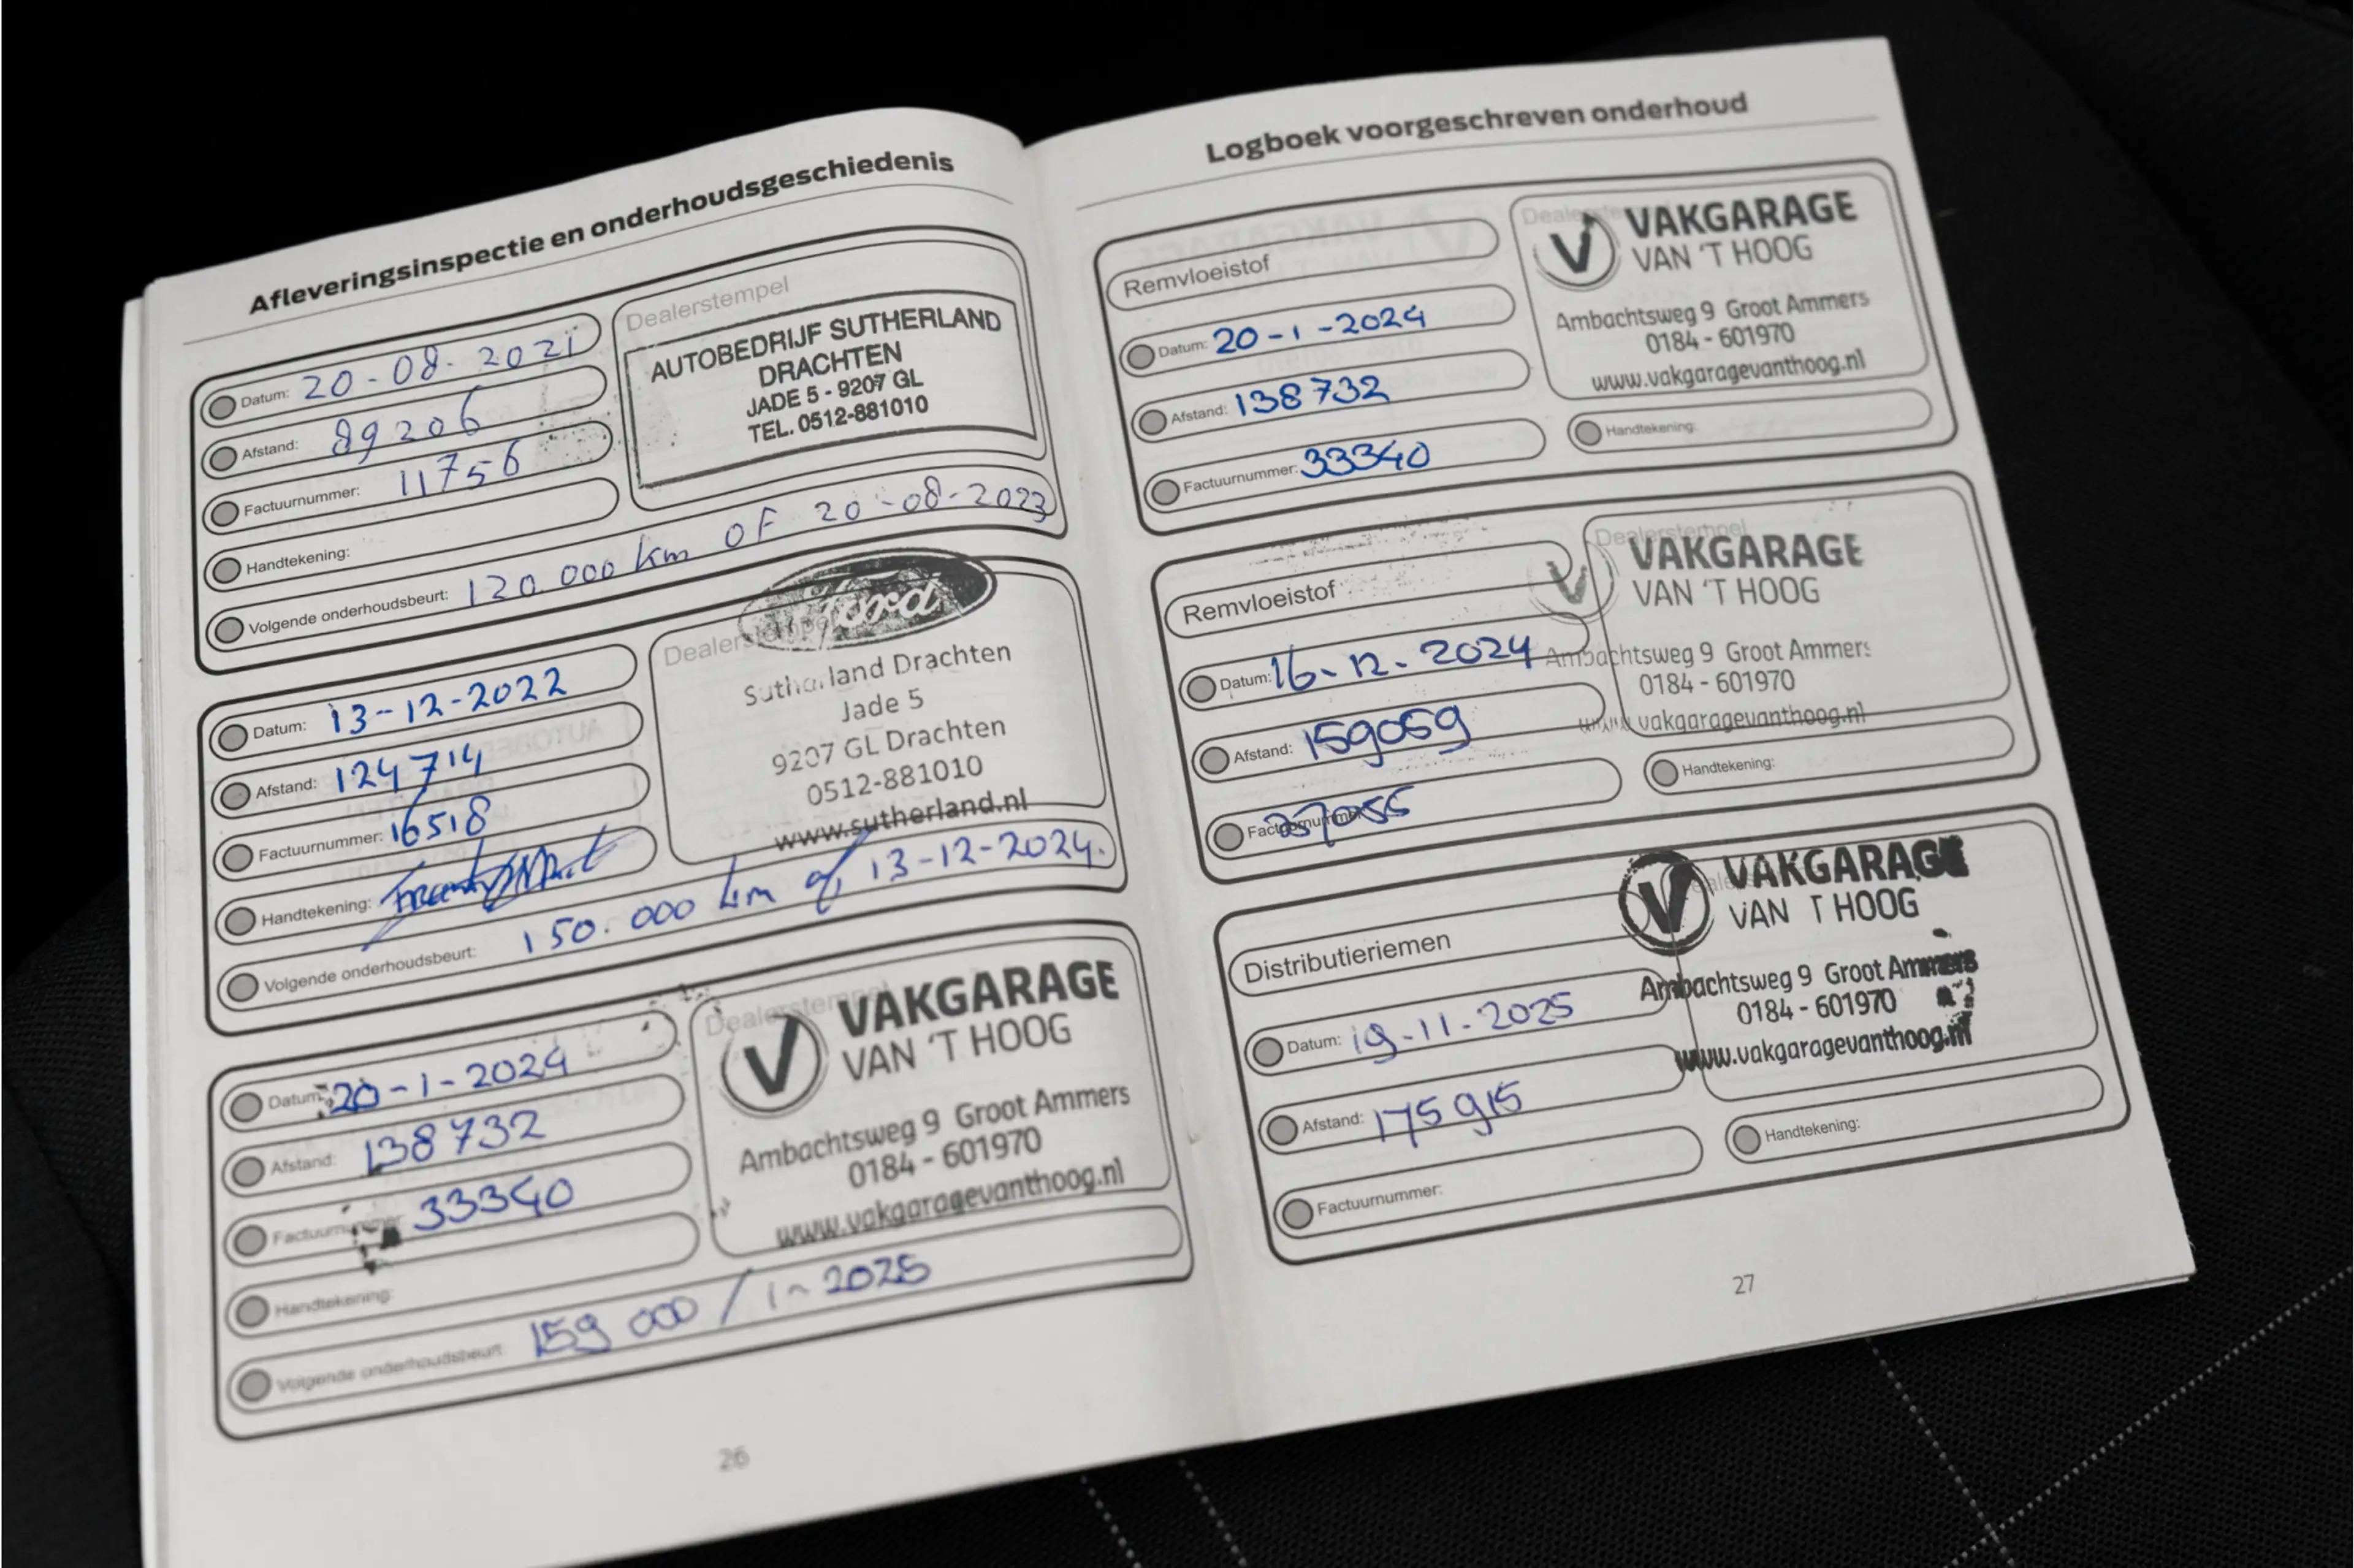 Afleveringsinspectie en onderhoudsgeschiedenis
Datum: 20-08-2021
Afstand: 89206
Factuurnummer: 11756
Handtekening:
Volgende onderhoudsbeurt: 120.000 km OF 20-08-2023
Dealerstempel
AUTOBEDRIJF SUTHERLAND
DRACHTEN
JADE 5 - 9207 GL
TEL. 0512-881010
Datum: 13-12-2022
Afstand: 124714
Factuurnummer: 16518
Handtekening:
Volgende onderhoudsbeurt: 150.000 km of 13-12-2024.
Dealerstempel
Ford
Sutherland Drachten
Jade 5
9207 GL Drachten
0512-881010
www.sutherland.nl
Datum: 20-1-2024
Afstand: 138732
Factuurnummer: 33340
Handtekening:
Volgende onderhoudsbeurt: 159 000 / 1-2025
Dealerstempel
V VAKGARAGE
VAN 'T HOOG
Ambachtsweg 9 Groot Ammers
0184 - 601970
www.vakgaragevanthoog.nl
26
Logboek voorgeschreven onderhoud
Remvloeistof
Datum: 20-1-2024
Afstand: 138732
Factuurnummer: 33340
Dealerstempel
V VAKGARAGE
VAN 'T HOOG
Ambachtsweg 9 Groot Ammers
0184 - 601970
www.vakgaragevanthoog.nl
Handtekening:
Remvloeistof
Datum: 16-12-2024
Afstand: 159059
Factuurnummer:
Dealerstempel
V VAKGARAGE
VAN 'T HOOG
Ambachtsweg 9 Groot Ammers
0184 - 601970
www.vakgaragevanthoog.nl
Handtekening:
Distributieriemen
Datum: 19-11-2025
Afstand: 175915
Factuurnummer:
V VAKGARAGE
VAN T HOOG
Ambachtsweg 9 Groot Ammers
0184 - 601970
www.vakgaragevanthoog.nl
Handtekening:
27